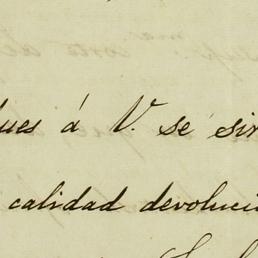 ues á V. se sir
calidad devoluci